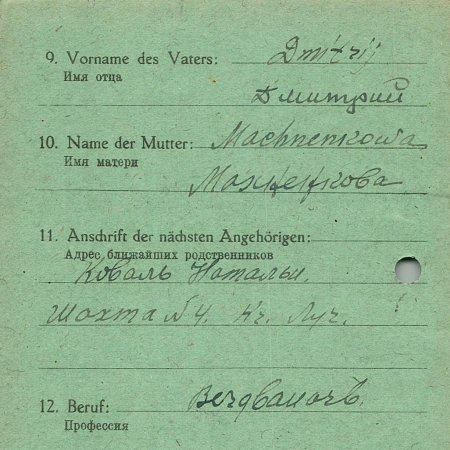 9. Vorname des Vaters: Dmitrij
Имя отца
Дмитрий
10. Name der Mutter: Machnenkowa
Имя матери
Махненкова
11. Anschrift der nächsten Angehörigen:
Адрес ближайших родственников
Коваль Натальи.
Шохта № 4. Кр. Луч.
12. Beruf:
Профессия